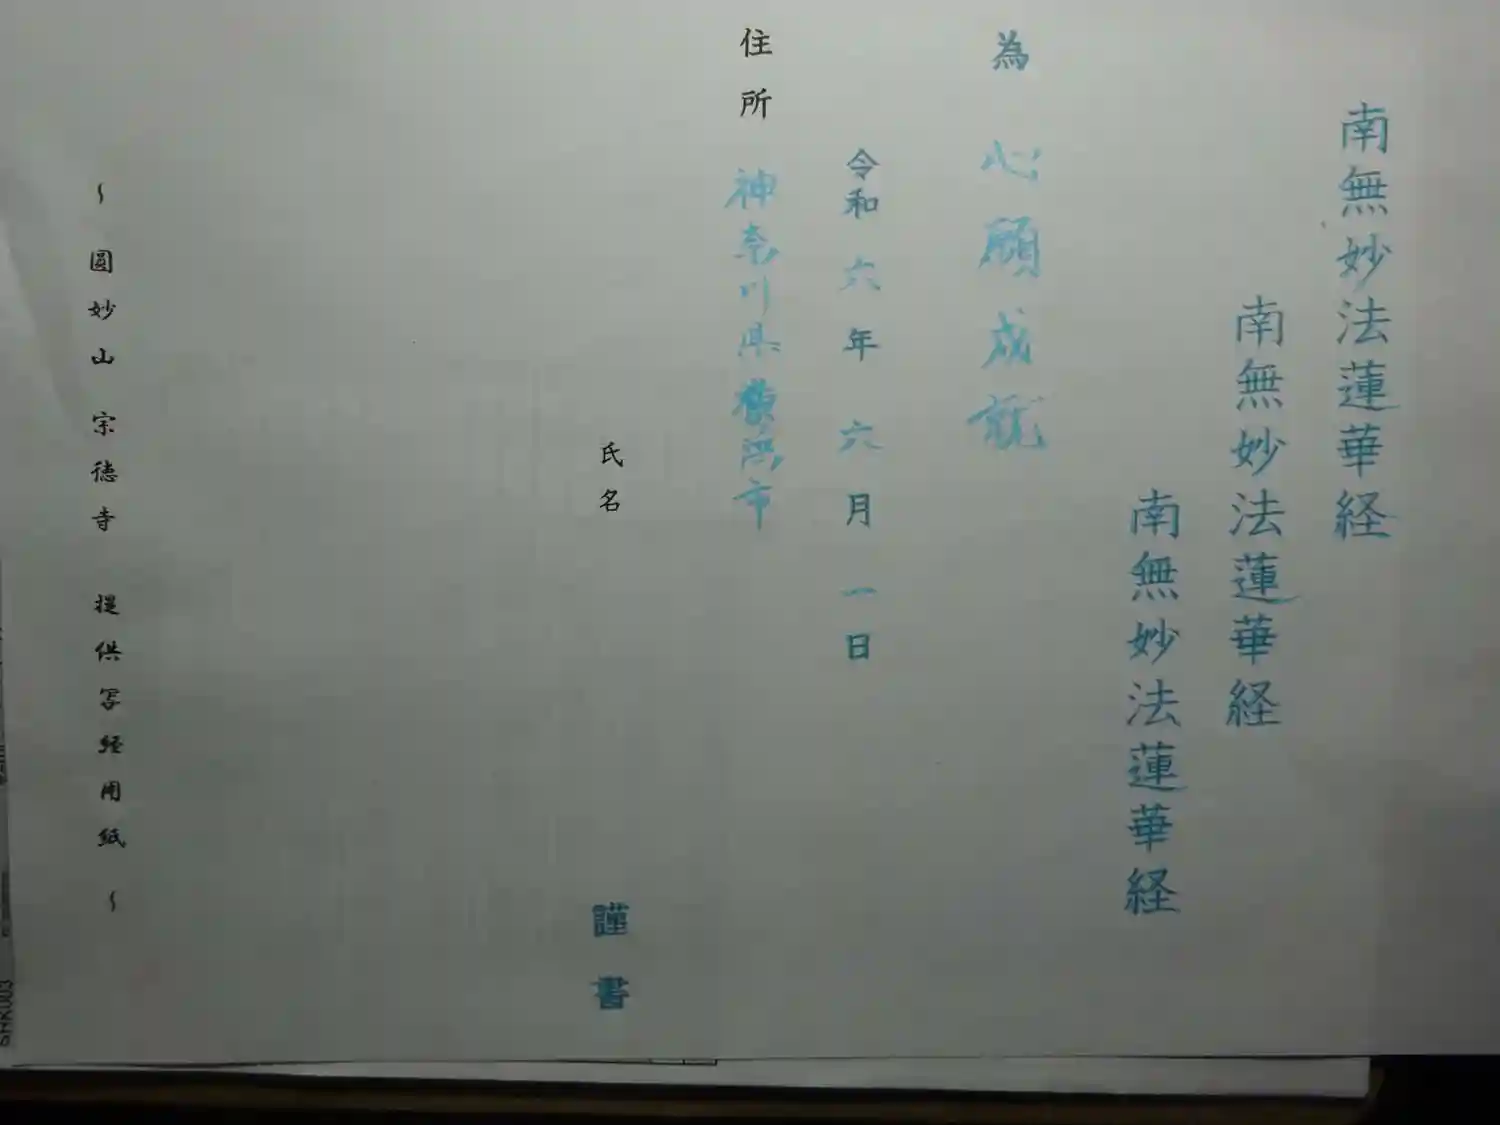 南無妙法蓮華経
南無妙法蓮華経
南無妙法蓮華経
為 心願成就
令和六年六月一日
住所 神奈川県横浜市
氏名 謹書
~ 圓妙山 宗徳寺 提供写経用紙 ~